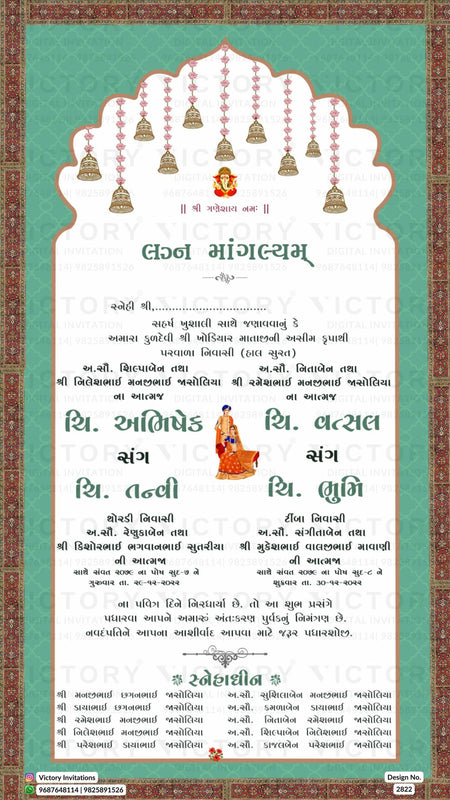 || શ્રી ગણેશાય નમઃ ||
લગ્ન માંગલ્યમ્
સ્નેહી શ્રી,................................
સહર્ષ ખુશાલી સાથે જણાવવાનું કે
અમારા કુળદેવી શ્રી ખોડિયાર માતાજીની અસીમ કૃપાથી
પરવાળા નિવાસી (હાલ સુરત)
અ.સૌ. શિલ્પાબેન તથા
શ્રી નિલેશભાઈ મનજીભાઈ જાસોલિયા
ના આત્મજ
ચિ. અભિષેક
સંગ
ચિ. તન્વી
થોરડી નિવાસી
અ.સૌ. રેણુકાબેન તથા
શ્રી કિશોરભાઈ ભગવાનભાઈ સુતરીયા
ની આત્મજા
સાથે સંવત ૨૦૭૯ ના પોષ સુદ-૭ ને
ગુરુવાર તા. ૨૯-૧૨-૨૦૨૨
અ.સૌ. નિતાબેન તથા
શ્રી રમેશભાઈ મનજીભાઈ જાસોલિયા
ના આત્મજ
ચિ. વત્સલ
સંગ
ચિ. ભુમિ
ટીંબા નિવાસી
અ.સૌ. સંગીતાબેન તથા
શ્રી મુકેશભાઈ વાલજીભાઈ માવાણી
ની આત્મજા
સાથે સંવત ૨૦૭૯ ના પોષ સુદ-૮ ને
શુક્રવાર તા. ૩૦-૧૨-૨૦૨૨
ના પવિત્ર દિને નિરધાર્યા છે. તો આ શુભ પ્રસંગે
પધારવા આપને અમારું અંતઃકરણ પુર્વકનું નિમંત્રણ છે.
નવદંપતિને આપના આશીર્વાદ આપવા માટે જરૂર પધારશોજી.
સ્નેહાધીન
શ્રી મનજીભાઈ છગનભાઈ જાસોલિયા
શ્રી ડાયાભાઈ છગનભાઈ જાસોલિયા
શ્રી રમેશભાઈ મનજીભાઈ જાસોલિયા
શ્રી નિલેશભાઈ મનજીભાઈ જાસોલિયા
શ્રી પરેશભાઈ ડાયાભાઈ જાસોલિયા
અ.સૌ. સુશિલાબેન મનજીભાઈ જાસોલિયા
અ.સૌ. કમળાબેન ડાયાભાઈ જાસોલિયા
અ.સૌ. નિતાબેન રમેશભાઈ જાસોલિયા
અ.સૌ. શિલ્પાબેન નિલેશભાઈ જાસોલિયા
અ.સૌ. કાજલબેન પરેશભાઈ જાસોલિયા
Victory Invitations
9687648114 | 9825891526
Design No.
2822
VICTORY
DIGITAL INVITATION
9687648114| 9825891526